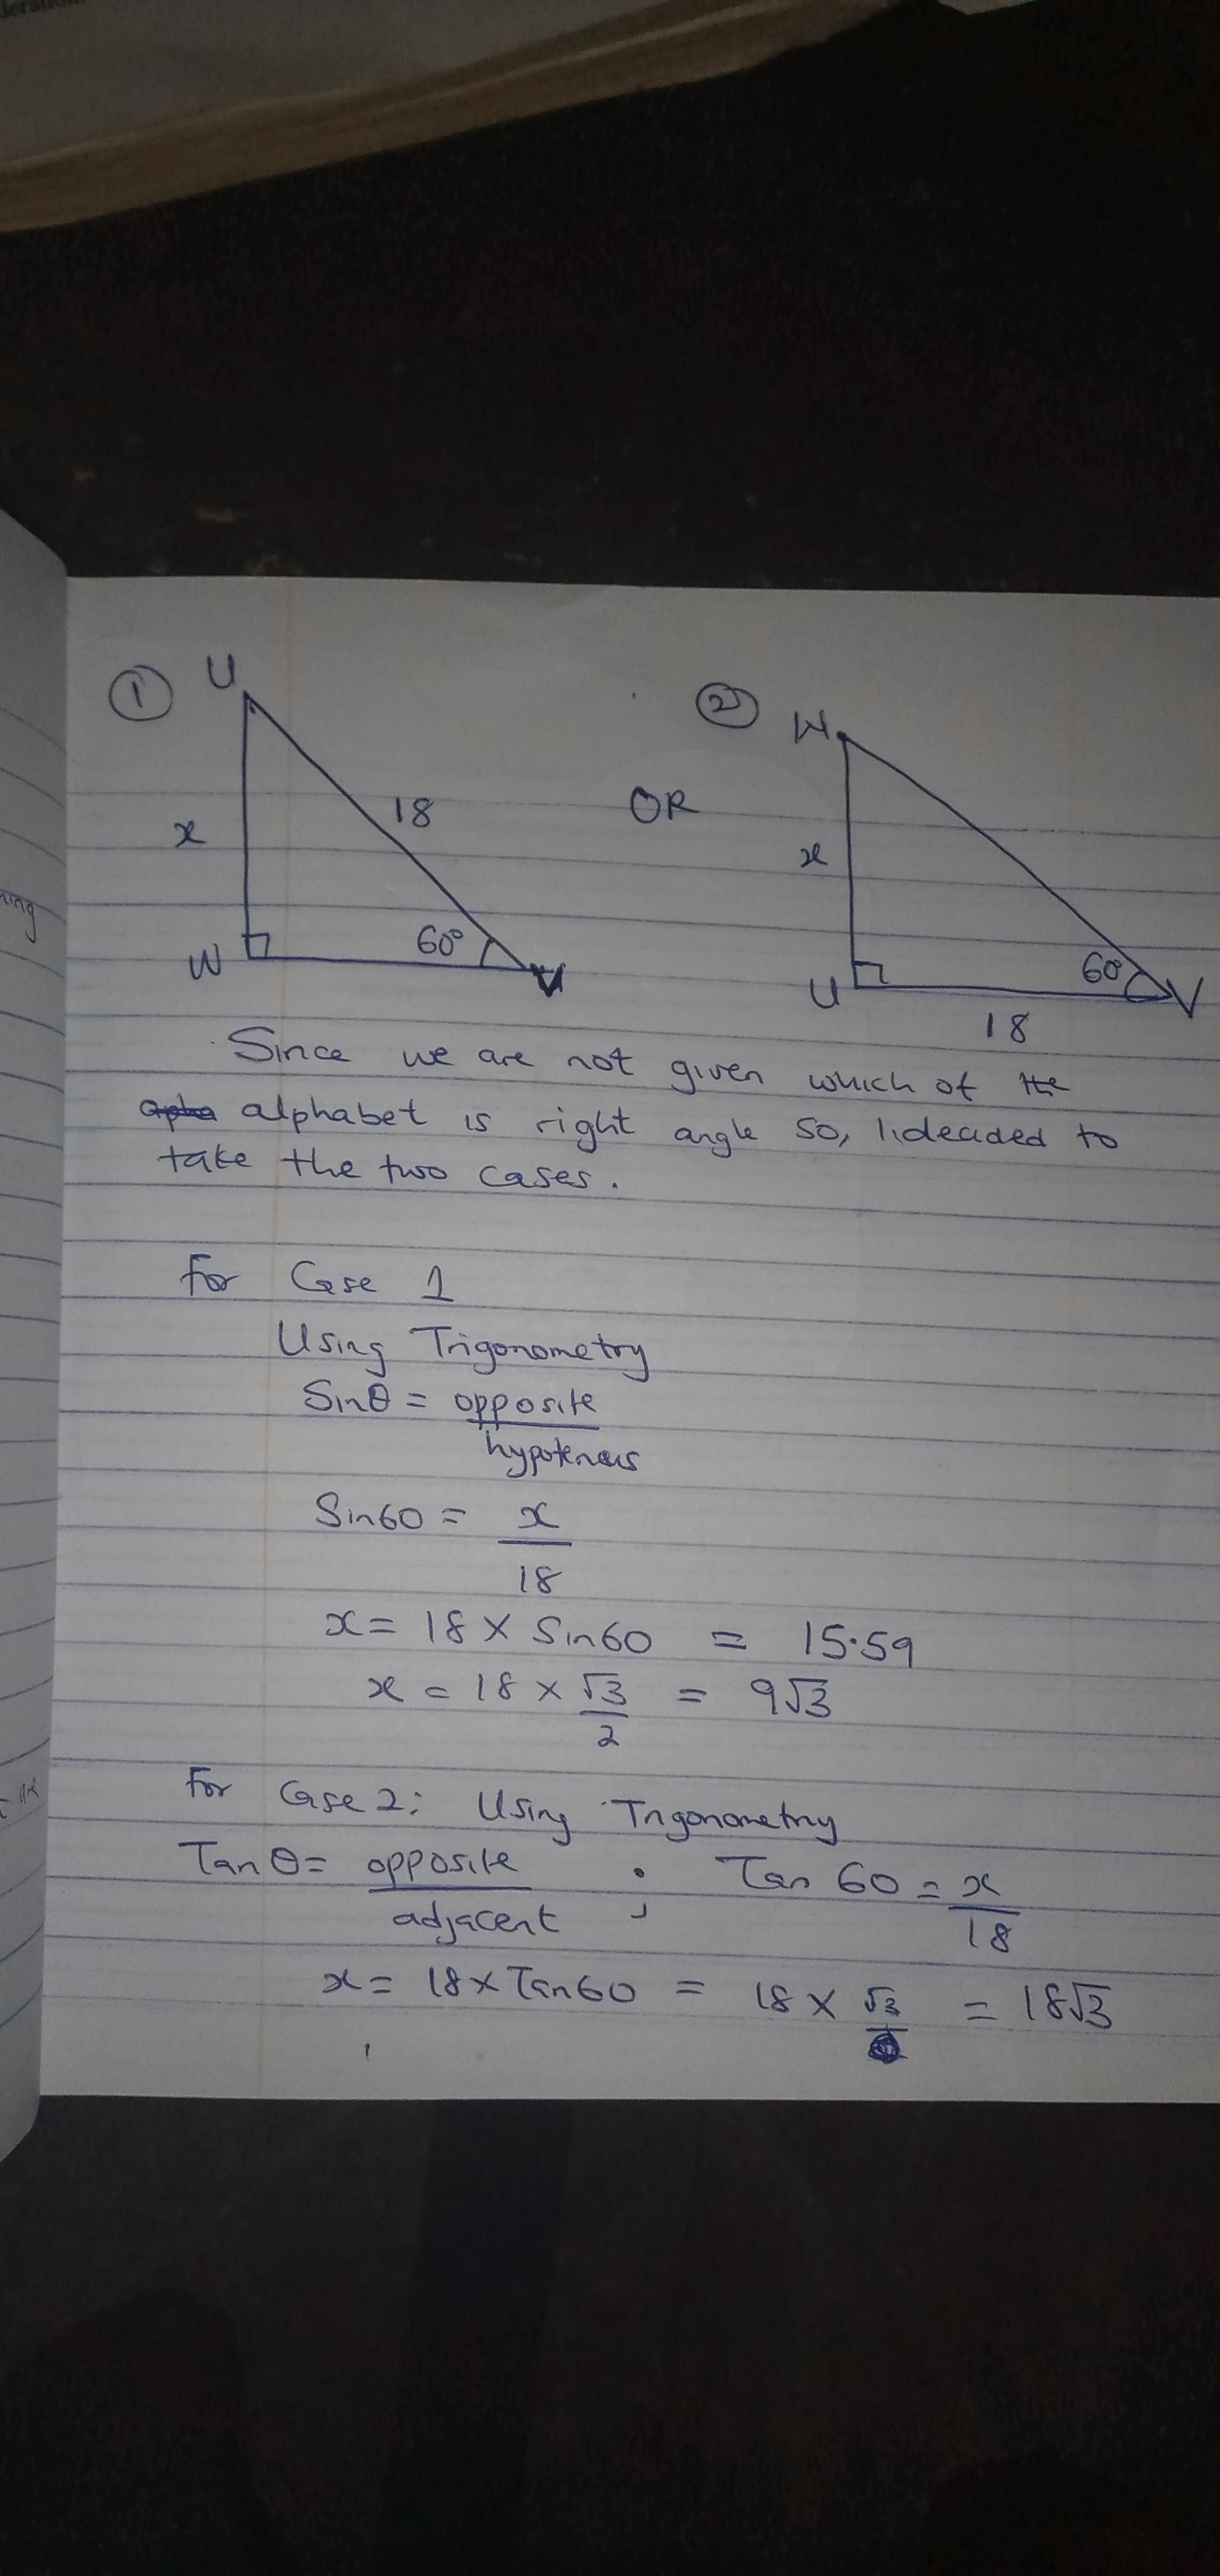 ① U
② W
18
OR
x
x
W
60°
V
U
60°
V
18
Since we are not given which of the
alphabet is right angle so, I decided to
take the two cases.
For Case 1
Using Trigonometry
Sinθ = opposite
hypotenus
Sin60 = x
18
x = 18 × Sin60 = 15.59
x = 18 × √3 = 9√3
2
For Case 2: Using Trigonometry
Tan θ = opposite ; Tan 60 = x
adjacent
18
x = 18 × Tan60 = 18 × √3 = 18√3